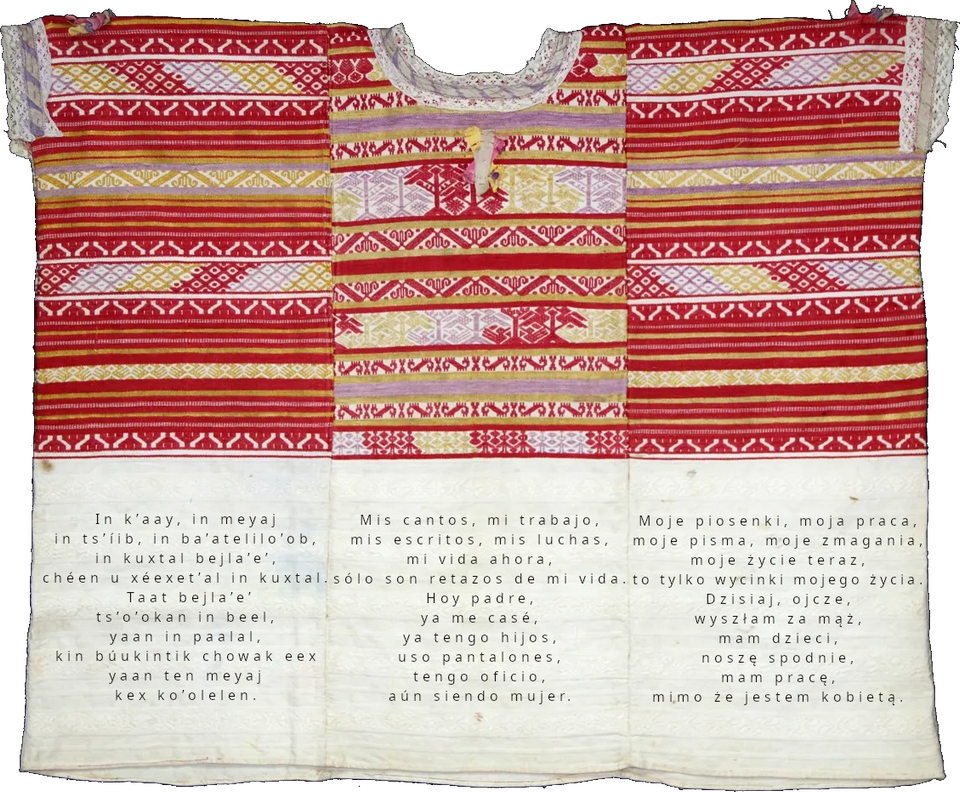 In k’aay, in meyaj
in ts’íib, in ba’atelilo’ob,
in kuxtal bejla’e’,
chéen u xéexet’al in kuxtal.
Taat bejla’e’
ts’o’okan in beel,
yaan in paalal,
kin búukintik chowak eex
yaan ten meyaj
kex ko’olelen.
Mis cantos, mi trabajo,
mis escritos, mis luchas,
mi vida ahora,
sólo son retazos de mi vida.
Hoy padre,
ya me casé,
ya tengo hijos,
uso pantalones,
tengo oficio,
aún siendo mujer.
Moje piosenki, moja praca,
moje pisma, moje zmagania,
moje życie teraz,
to tylko wycinki mojego życia.
Dzisiaj, ojcze,
wyszłam za mąż,
mam dzieci,
noszę spodnie,
mam pracę,
mimo że jestem kobietą.